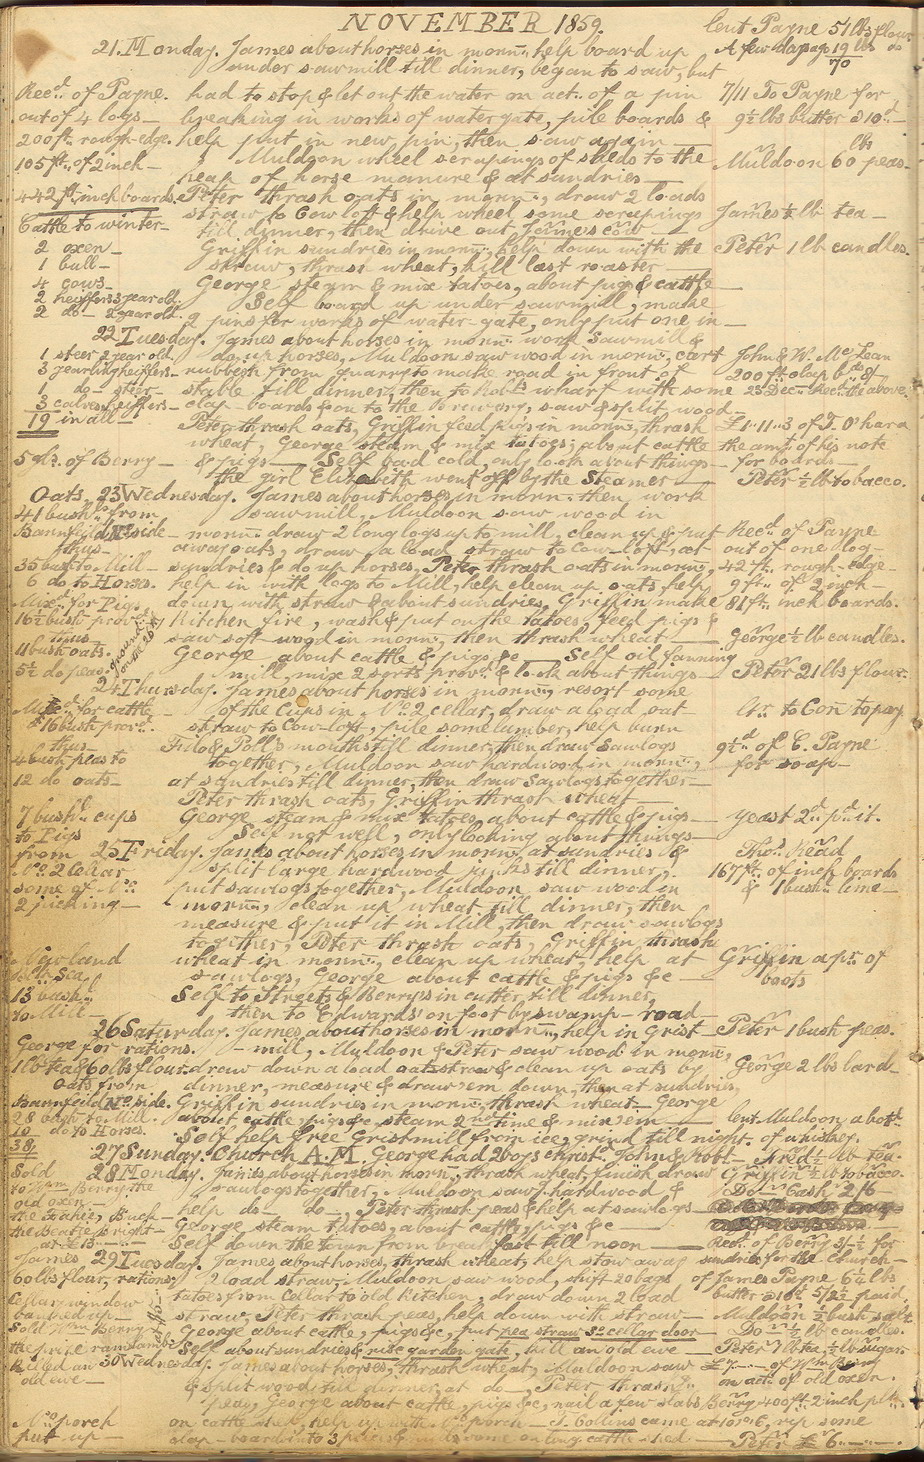 NOVEMBER 1859.
lent Payne 51 lbs flour
A few days ago 19 lbs do
70
21. Monday. James about horses in morn:, help board up
under sawmill till dinner, began to saw, but
Rec.d of Payne. had to stop & let out the water on act: of a pin 7/11 To Payne for
out of 4 logs — breaking in works of water gate, pile boards & 9½ lbs butter @ 10d —
200 ft. rough-edge. help put in new pin, then saw again —
105 ft. of 2 inch — Muldoon wheel scrapings of sheds to the Muldoon 60 lbs peas.
heap of horse manure & at sundries —
442 ft. inch boards. Peter thrash oats in morn:, draw 2 loads
straw to Cow loft & help wheel some scrapings James ½ lb tea —
Cattle to winter — till dinner, then drive out James's cow —
2 oxen — Griffin sundries in morn:, help down with the Peter 1 lb candles.
1 bull — straw, thrash wheat, kill last roaster —
4 cows — George steam & mix tatoes, about pigs & cattle —
2 heiffers 3 year old. Self board up under sawmill, make
2 do — 2 year old. 2 pins for works of water-gate, only put one in —
22 Tuesday. James about horses in morn: work Sawmill &
1 steer 2 year old. do up horses, Muldoon saw wood in morn:, cart John & W. McLean
3 yearling heiffers — rubbish from quarry to make road in front of 200 ft clap bds @
1 do — steer — stable till dinner, then to Robts wharf with some 28 Dec — Rec.d the above.
3 calves heiffers — clap-boards & on to the Brewery, saw & split wood —
19 in all — Peter thrash oats, Griffin feed pigs in morn:, thrash £1"11"3 of T. O'hara
wheat, George steam & mix tatoes, about cattle the amt of his note
5 gls. of Berry — & pigs — Self bad cold, only look about things — for boards —
the girl Elizabeth went off by the Steamer — Peter ½ lb tobacco.
Oats. 23 Wednesday. James about horses in morn: then work
41 bush: from sawmill, Muldoon saw wood in
Bannfield No. side — morn: draw 2 long logs up to mill, clean up & put Rec.d of Payne
thus — away oats, draw a load straw to cow-loft, at out of one log —
35 bush to Mill — sundries & do up horses, Peter thrash oats in morn:, 42 ft. rough-edge —
6 do to Horses. help in with logs to Mill, help clean up oats, help 9 ft. of 2 inch —
Mixd for Pigs down with straw & about sundries, Griffin make 81 ft. inch boards.
16½ bush: prov: kitchen fire, wash & put on the tatoes, feed pigs &
thus — saw soft wood in morn:, then thrash wheat — George ½ lb candles.
11 bush oats. George about cattle & pigs &c — Self oil fanning
5½ do peas mill, mix 2 sorts prov: & look about things — Peter 21 lbs flour.
24 Thursday. James about horses in morn:, resort some
Mixd for cattle of the Cups in No. 2 cellar, draw a load oat
16 bush prov.d straw to Cow-loft, pile some lumber, help burn
thus — Filo & Poll's mouths till dinner, then draw Sawlogs 9½d of C. Payne
4 bush peas to together, Muldoon saw hardwood in morn:, for soap —
12 do oats — at sundries till dinner, then draw sawlogs together —
Peter thrash oats, Griffin thrash wheat —
7 bush: cups George steam & mix tatoes, about cattle & pigs — yeast 2d pd it.
to Pigs Self not well, only looking about things —
from 25 Friday. James about horses in morn: at sundries & Thos. Read
No. 2 Cellar split large hardwood junks till dinner, 167 ft. of inch boards
some of No. put sawlogs together, Muldoon saw wood in & 1 bush: lime —
2 picking — morn:, clean up wheat till dinner, then
measure & put it in Mill, then draw sawlogs
together, Peter thrash oats, Griffin thrash
wheat in morn:, clean up wheat, help at Griffin a pr. of
sawlogs, George about cattle & pigs &c — boots
13 bush: Self to Street's & Berry's in cutter till dinner,
to Mill — then to Edwards' on foot by swamp-road —
26 Saturday. James about horses in morn:, help in Grist Peter 1 bush peas.
George for rations. — mill, Muldoon & Peter saw wood in morn:,
1 lb tea & 60 lbs flour. draw down a load oat straw & clean up oats by George 2 lbs lard
Oats from dinner, measure & draw 'em down, then at sundries
Bannfeild No. side. Griffin sundries in morn:, thrash wheat — George
28 bush to Mill about cattle pigs &c, steam 2nd time & mix 'em — lent Muldoon a bot:
10 do to Horses. Self help free Gristmill from ice, grind till night. of whiskey.
38 27 Sunday. Church A.M. George had 2 boys christ.d John & Robt —
Sold 28 Monday. James about horses in morn:, thrash wheat, finish draw Griffin ½ lb tobacco.
to Wm Berry the sawlogs together, Muldoon saw hardwood & Do — Cash 2/6
old oxen — help do — do —, Peter thrash peas & help at sawlogs
George steam tatoes, about cattle, pigs &c —
at £15 — Self down the town from breakfast till noon — Rec.d of Berry for
James 29 Tuesday. James about horses, thrash wheat, help stow away sundries for the Church —
60 lbs flour, rations. 2 load straw, Muldoon saw wood, shift 20 bags of James Payne 6¼ lbs
Cellar-window tatoes from Cellar to old kitchen, draw down 2 load butter @ 10d 5/2½ paid
banked up — straw, Peter thrash peas, help down with straw — Muldoon ½ bush salt
Sold Wm Berry George about cattle, pigs &c, put pea straw So. cellar door — Do — ½ lb candles.
the prize ram lamb Self about sundries & rise garden gate, kill an old ewe — Peter 1 lb tea, ½ lb sugar
killed an 30 Wednesday. James about horses, thrash wheat, Muldoon saw of Wm Berry
old ewe — & split wood till dinner, at do —, Peter thrash on act: of old oxen.
peas, George about cattle, pigs &c, nail a few slabs Berry 400 ft. 2 inch
No. porch on cattle shed, help up with No. porch — T. Collins came at 10 , rip some
put up — clap-board into 3 pieces & some on long cattle shed — Peter £ 6"—"—